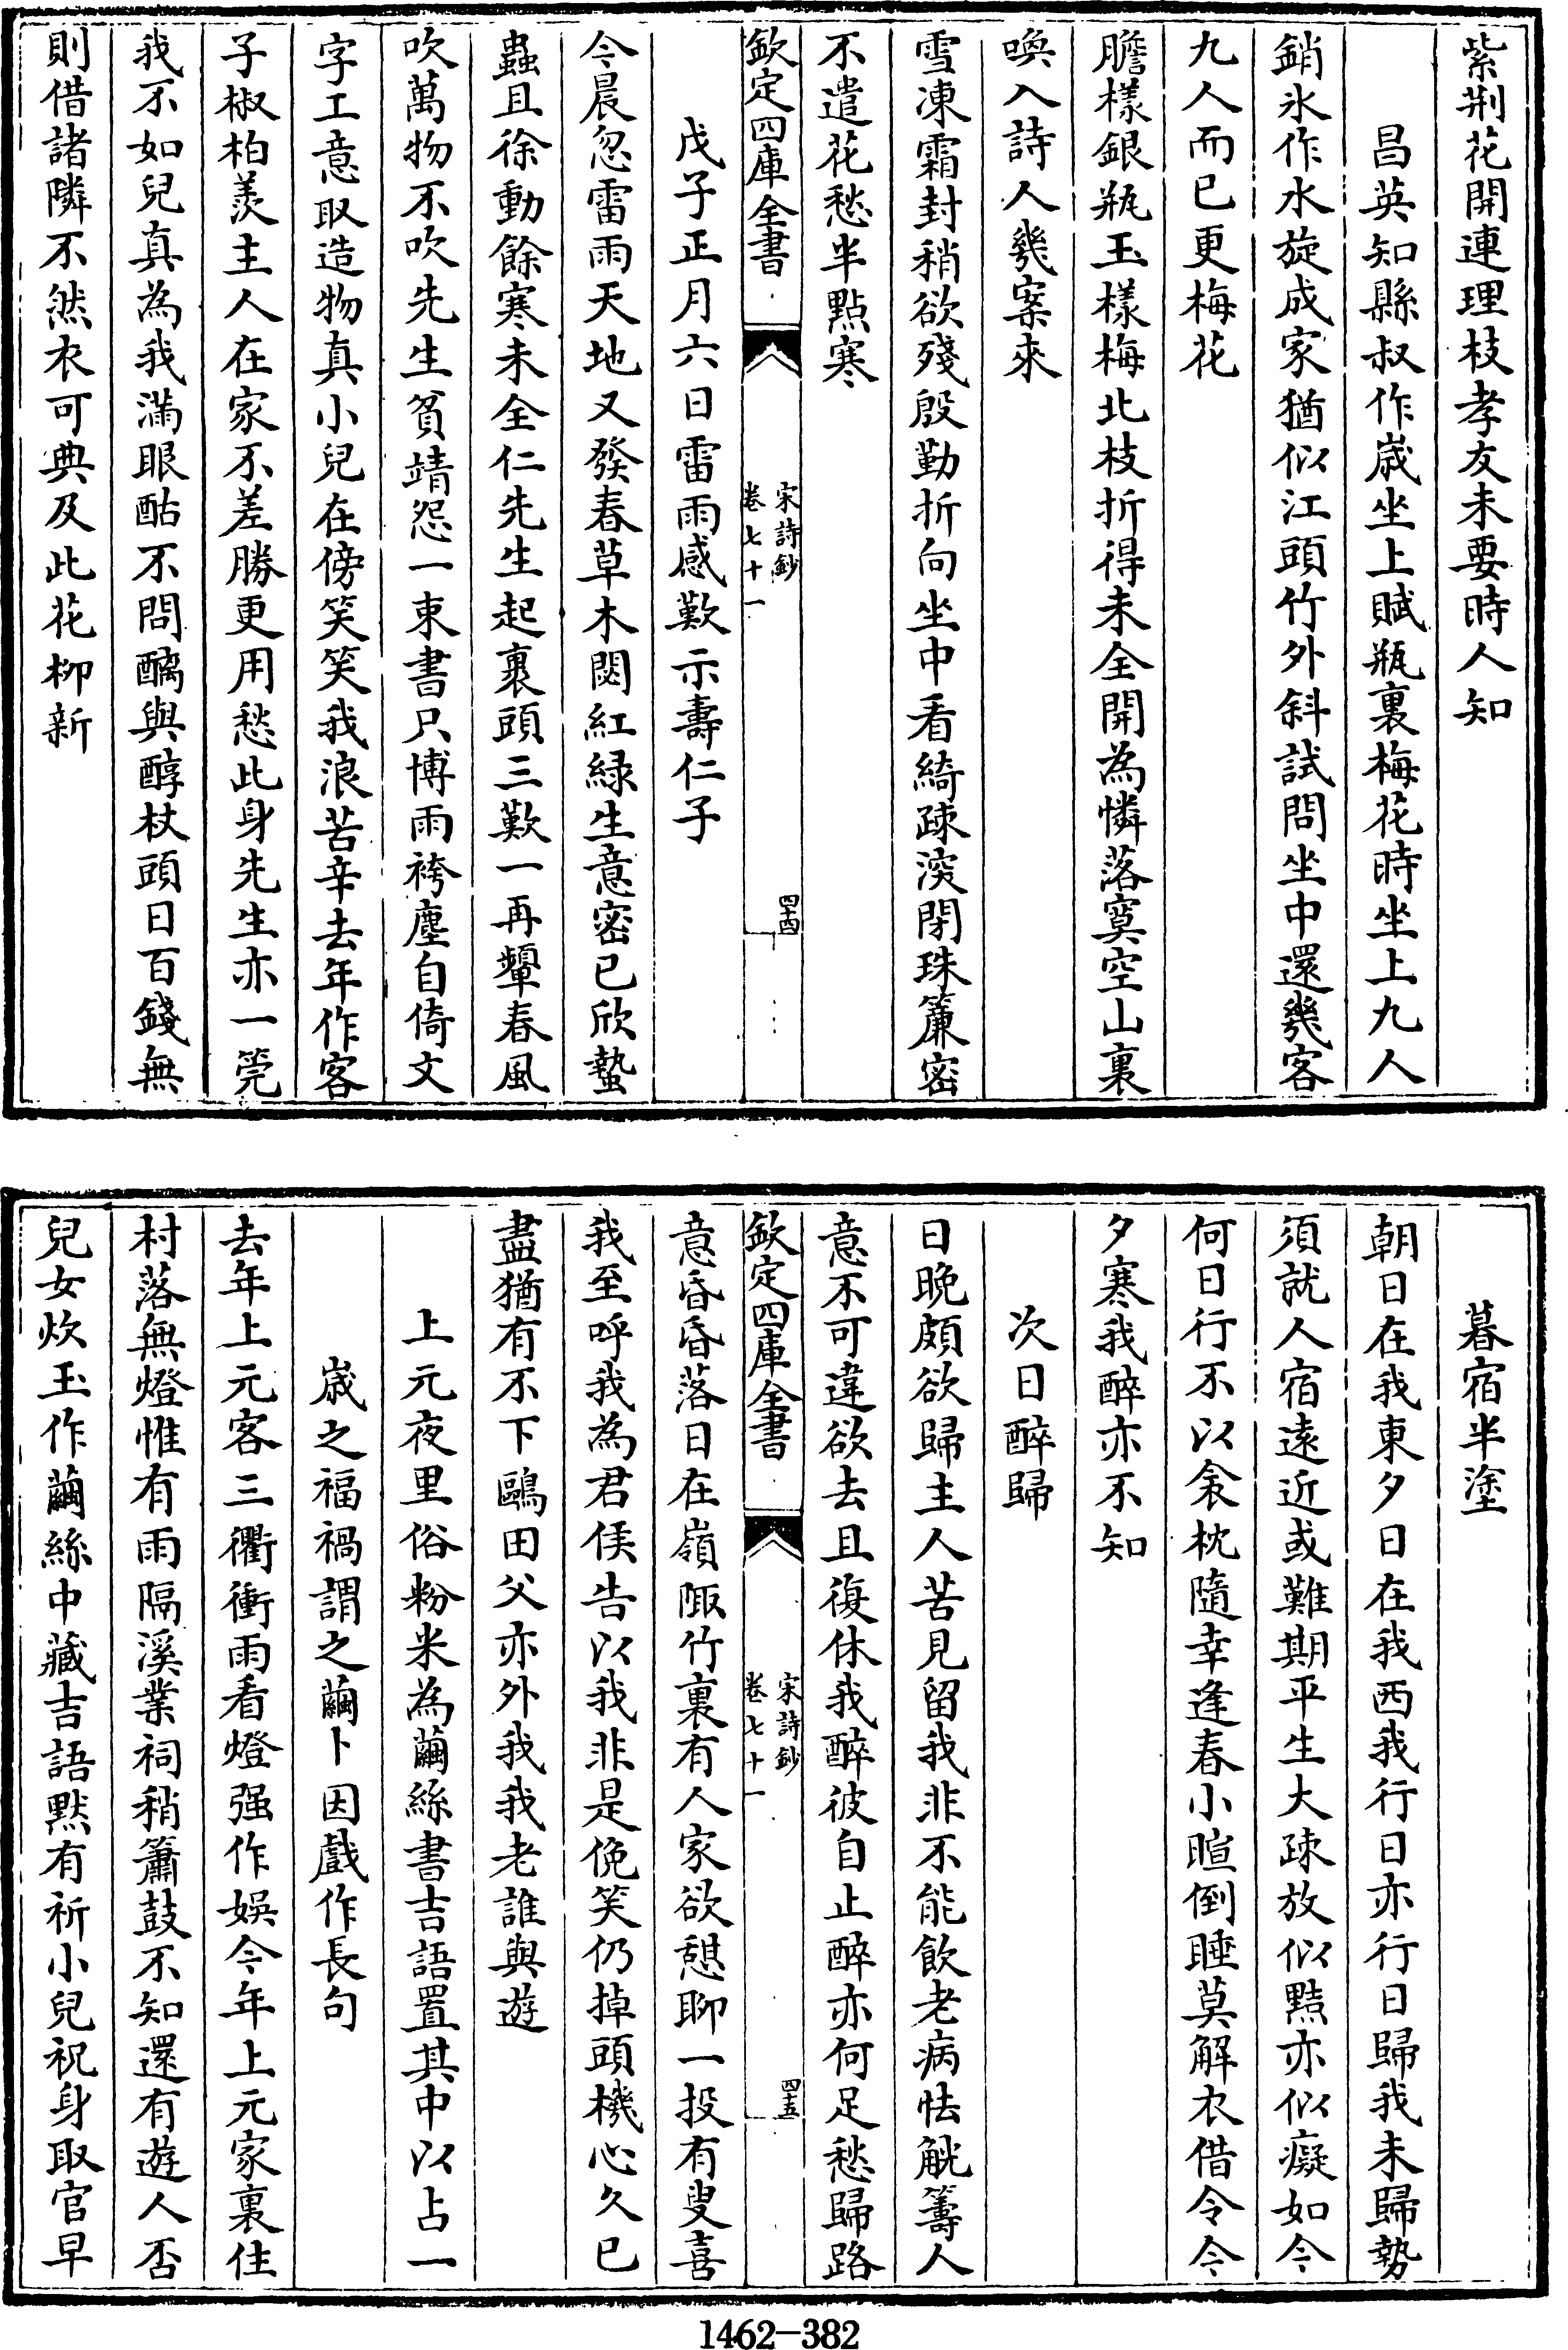 紫荆花開連理枝孝友未要時人知
昌英知縣叔作嵗坐上賦瓶裏梅花時坐上九人
銷氷作水旋成家猶似江頭竹外斜試問坐中還幾客
九人而已更梅花
膽様銀瓶玉様梅北枝折得未全開為憐落寞空山裏
喚入詩人幾案來
雪凍霜封稍欲殘殷勤折向坐中看綺疎深閉珠簾密
不遣花愁半點寒
欽定四庫全書
宋詩鈔
卷七十一
四十四
戊子正月六日雷雨感歎示夀仁子
今晨忽雷雨天地又發春草木閟紅緑生意密已欣蟄
蟲且徐動餘寒未全仁先生起裹頭三歎一再顰春風
吹萬物不吹先生貧靖怨一束書只博雨袴塵自倚文
字工意取造物真小兒在傍笑笑我浪苦辛去年作客
子椒柏羨主人在家不差勝更用愁此身先生亦一筦
我不如兒真為我滿眼酤不問醨與醇杖頭日百錢無
則借諸隣不然衣可典及此花柳新
暮宿半塗
朝日在我東夕日在我西我行日亦行日歸我未歸勢
須就人宿逺近或難期平生大疎放似黠亦似癡如今
何日行不以衾枕隨幸逢春小暄倒睡莫解衣借令今
夕寒我醉亦不知
次日醉歸
日晚頗欲歸主人苦見留我非不能飲老病怯觥籌人
意不可違欲去且復休我醉彼自止醉亦何足愁歸路
欽定四庫全書
宋詩鈔
卷七十一
四十五
意昏昏落日在嶺陬竹裏有人家欲憩聊一投有叟喜
我至呼我為君侯告以我非是俛笑仍掉頭機心久已
盡猶有不下鷗田父亦外我我老誰與遊
上元夜里俗粉米為繭絲書吉語置其中以占一
嵗之福禍謂之繭卜因戲作長句
去年上元客三衢衝雨看燈强作娯今年上元家裏住
村落無燈惟有雨隔溪業祠稍簫鼓不知還有遊人否
兒女炊玉作繭絲中藏吉語黙有祈小兒祝身取官早
1462-382